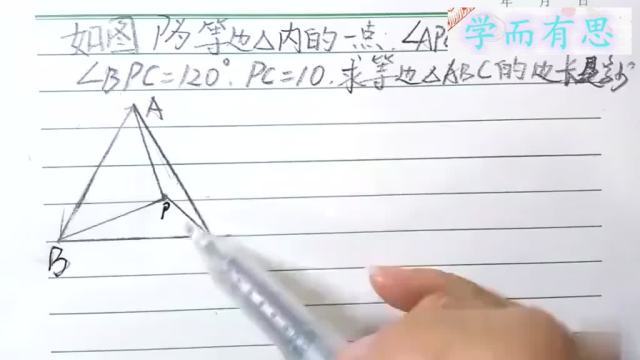 年 月 日
学而有思
如图 P为等边△内的一点.∠AP
∠BPC=120°.PC=10.求等边△ABC的边长是
A
P
B